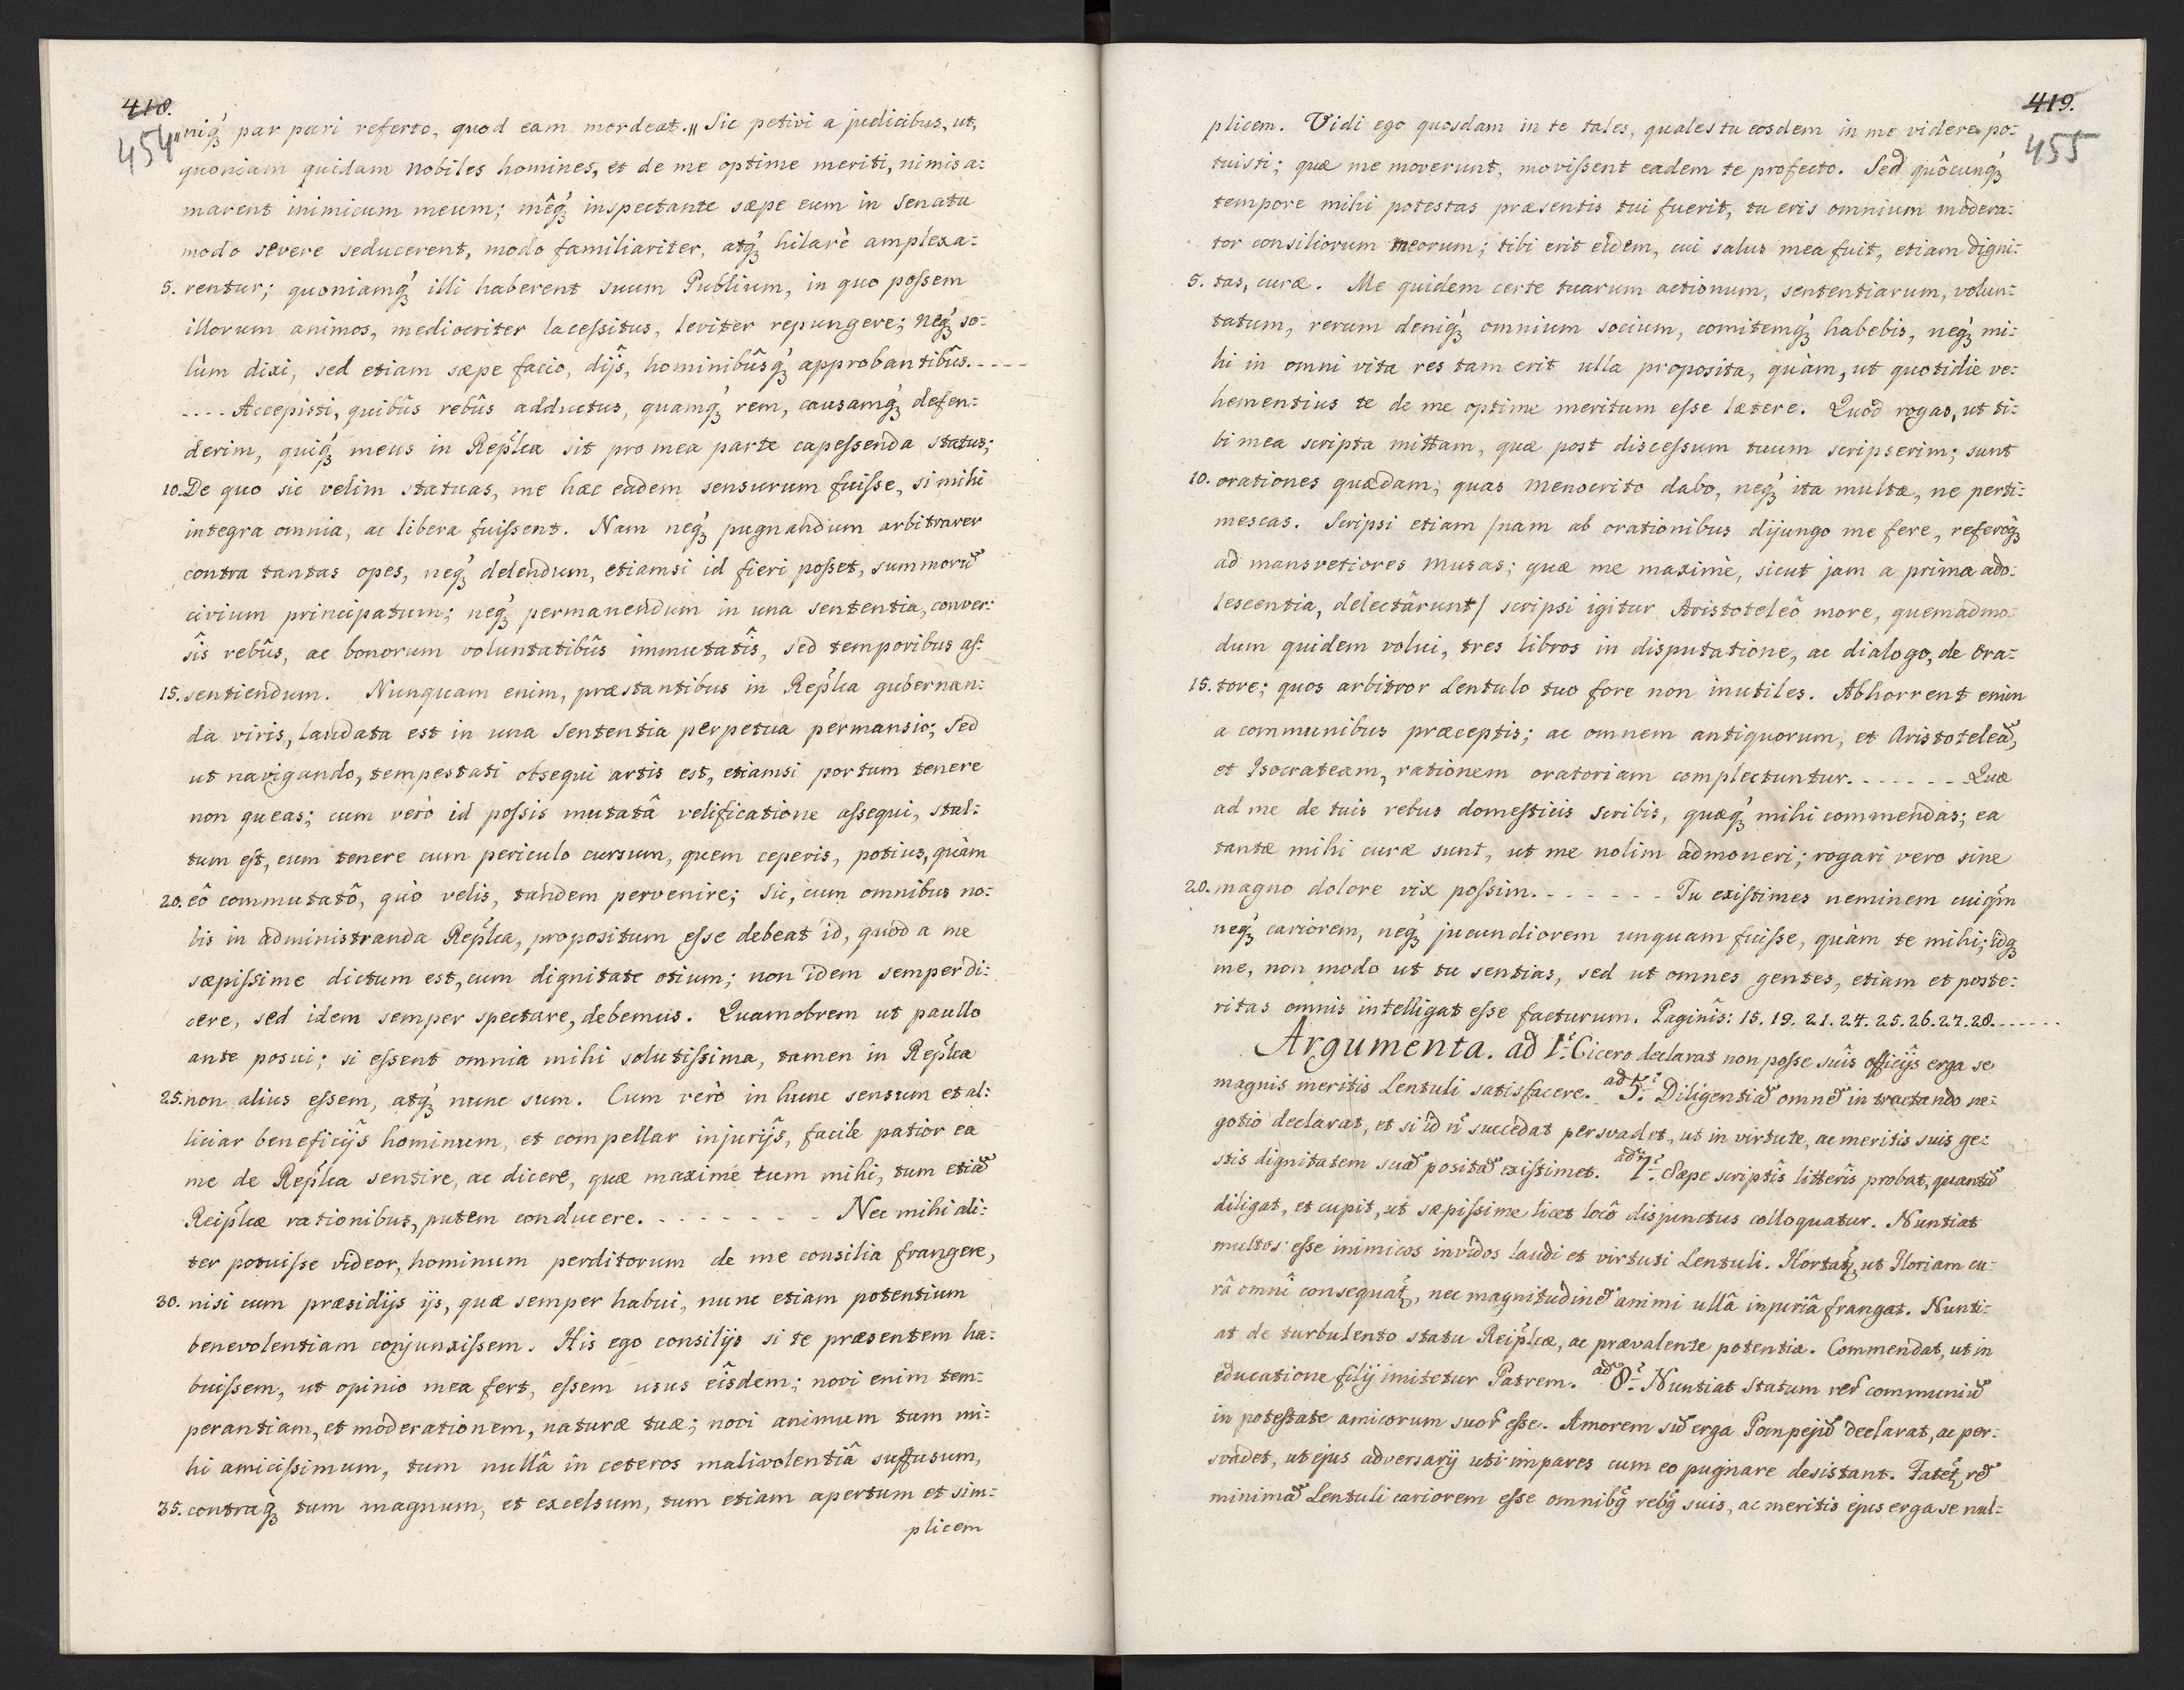 418.
454
„niq́ꝫ par pari referto, quod eam mordeat.„ Sic petivi a judicibus, ut,
quoniam quidam nobiles homines, et de me optime meriti, nimis a:
marent inimicum meum; mêq́ꝫ inspectante sæpe eum in Senatu
modo severe seducerent, modo familiariter, atq́ꝫ hilarè amplexa:
5. rentur; quoniamq́ꝫ illi haberent suum Publium, in quo poſsem
illorum animos, mediocriter laceſsitus, leviter repungere; neq́ꝫ so:
lùm dixi, sed etiam sæpe facio, dijs̑, hominibûsq́ꝫ approbantibûs.-----
----Accepisti, quibûs rebûs adductus, quamq́ꝫ rem, causamq́ꝫ defen:
derim, quiq́ꝫ meus in Rep̃lca sit pro mea parte capeſsenda status;
10. De quo sic velim statuas, me hæc eadem sensurum fuiſse, si mihi
integra omnia, ac libera fuiſsent. Nam neq́ꝫ pugnandum arbitrarer
contra tantas opes, neq́ꝫ delendum, etiamsi id fieri poſset, summorũ
civium principatum; neq́ꝫ permanendum in una sententia, conver:
sîs rebûs, ac bonorum voluntatibûs immutatîs, sed temporibus aſ:
15. sentiendum. Nunquam enim, præstantibus in Rep̃lca gubernan:
da viris, laudata est in una Sententia perpetua permansio; Sed
ut navigando, tempestati obsequi artis est, etiamsi portum tenere
non queas; cum verò id poſsis mutatâ velificatione aſsequi, stul:
tum eſt, eum tenere cum periculo cursum, quem ceperis, potius, quàm
20. eô commutatô, quò velis, tandem pervenire; Sic, cum omnibus no:
bis in administranda Rep̃lca, propositum eſse debeat id, quod a me
sæpiſsime dictum est, cum dignitate otium; non idem semper di:
cere, sed idem semper spectare, debemus. Quamobrem ut paullo
ante posui; si eſsent omnia mihi solutiſsima, tamen in Rep̃lca
25. non alius eſsem, atq́ꝫ nunc sum. Cum verò in hunc sensum et al:
liciar beneficijs̑ hominum, et compellar injurijs̑, facile patior ea
me de Rep̃lca sentire, ac dicere, quæ maxime tum mihi, tum etiã
Reip̃lcæ rationibus, putem conducere. - - - - - - - - Nec mihi ali:
ter potuiſse videor, hominum perditorum de me consilia frangere,
30. nisi cum præsidijs ijs, quæ semper habui, nunc etiam potentium
benevolentiam conjunxiſsem. His ego consilijs si te præsentem ha:
buiſsem, ut opinio mea fert, eſsem usus eîsdem; novi enim tem:
perantiam, et moderationem, naturæ tuæ; novi animum tum mi:
hi amiciſsimum, tum nullâ in ceteros malivolentiâ suffusum,
35. contraq́ꝫ tum magnum, et excelsum, tum etiam apertum et sim:
plicem
419.
455
plicem. Vidi ego quosdam in te tales, quales tu eosdem in me videre po:
tuisti; quæ me moverunt, moviſsent eadem te profecto. Sed quôcunq́ꝫ
tempore mihi potestas præsentis tui fuerit, tu eris omnium modera:
tor consiliorum meorum; tibi erit eîdem, cui salus mea fuit, etiam digni:
5. tas, curæ. Me quidem certe tuarum actionum, sententiarum, volun:
tatum, rerum deniq́ꝫ omnium socium, comitemq́ꝫ habebis, neq́ꝫ mi:
hi in omni vita res tam erit ulla proposita, quàm, ut quotidie ve:
hementius te de me optime meritum eſse lætere. Quod rogas, ut ti:
bi mea scripta mittam, quæ post disceſsum tuum scripserim; sunt
10. orationes quædam, quas menocrito dabo, neq́ꝫ ita multæ, ne perti:
mescas. Scripsi etiam /nam ab orationibus dijungo me fere, referoq́ꝫ
ad mansvetiores musas; quæ me maximè, sicut jam a prima ado:
lescentia, delectârunt/ scripsi igitur Aristoteleô more, quemadmo:
dum quidem volui, tres libros in disputatione, ac dialogo, de Ora:
15. tore; quos arbitror Lentulo tuo fore non inutiles. Abhorrent enim
a communibus præceptis; ac omnem antiquorum, et Aristoteleã,
et Isocrateam, rationem oratoriam complectuntur. - - - - - - Quæ
ad me de tuis rebus domeſticis scribis, quæq́ꝫ mihi commendas; ea
tantæ mihi curæ sunt, ut me nolim admoneri; rogari vero sine
20. magno dolore vix poſsim. - - - - - - - Tu exiſtimes neminem cuiq̃m
neq́ꝫ cariorem, neq́ꝫ jucundiorem unquam fuiſse, quàm te mihi; idq́ꝫ
me, non modo ut tu sentias, sed ut omnes gentes, etiam et poste:
ritas omnis intelligat eſse facturum. Paginîs: 15. 19. 21. 24. 25. 26. 27. 28.------
Argumenta. ad 1: Cicero declarat non poſse suîs officijs̑ erga se
magnis meritis Lentuli satisfacere. ad 5: Diligentiã omnẽ in tractando ne:
gotio declarat, et si id ñ succedat persvadet, ut in virtute, ac meritis suis ge:
stis dignitatem suã positã exiſtimet. ad 7: Sæpe scriptîs litterîs probat, quantũ
diligat, et cupit, ut sæpiſsime licet locô disjunctus colloquatur. Nuntiat
multos eſse inimicos invidos laudi et virtuti Lentuli. Hortatꝫ, ut Gloriam cu:
râ omnî consequatꝫ, nec magnitudinẽ animi ullâ injuriâ frangat. Nunti:
at de turbulento statu Reip̃lcæ, ac prævalente potentia. Commendat, ut in
educatione filij imitetur Patrem. ad 8: Nuntiat statum rer̃ communiũ
in poteſtate amicorum suor̃ eſse. Amorem sũ erga Pompejũ declarat, ac per:
svadet, ut ejus adversarij uti impares cum eo pugnare desistant. Fatetꝫ rẽ
minimã Lentuli cariorem eſse omnibq̃ rebq̃ suis, ac meritis ejus erga se nul: